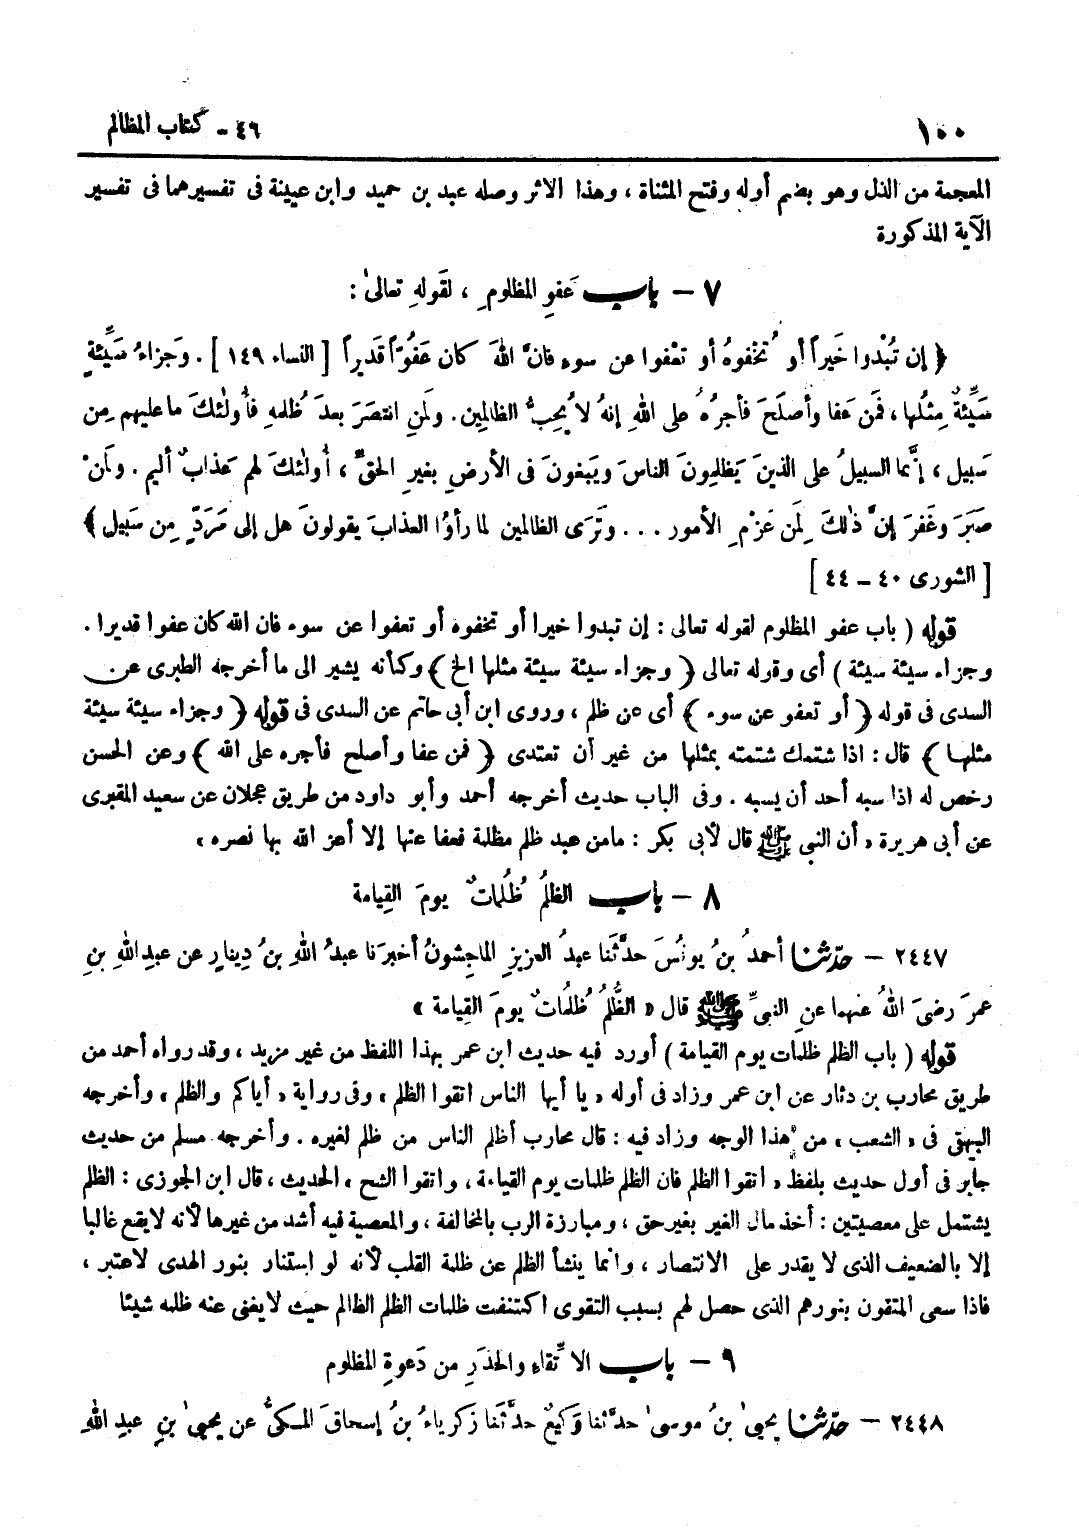 ١٠٠ ٤٦ - كتاب المظالم
المعجمة من الذل وهو بضم أوله وفتح المثناة ، وهذا الاثر وصله عبد بن حميد وابن عيينة فى تفسيرهما فى تفسير
الآية المذكورة
٧ - باب عفوِ المظلومِ ، لقولهِ تعالىٰ :
﴿ إن تُبْدُوا خَيراً أو تُخفوهُ أو تعْفوا عن سوء فانَّ اللّٰهَ كان عَفُوًّا قَديراً [ النساء ١٤٩ ] . وَجزاءُ سَيِّئةٍ
سَيِّئةٌ مِثلُها ، فمَن عَفا وأصلَحَ فأجرُهُ على اللهِ إنهُ لا يُحِبُّ الظالمِين . ولَمنِ انتصَرَ بعدَ ظُلمهِ فأُولٰئكَ ما عليهم مِن
سَبيل ، إنَّما السبيلُ على الذينَ يَظلِمونَ الناسَ ويَبغونَ فى الأرضِ بغيرِ الحقِّ ، أُولٰئكَ لهم عَذابٌ أليم . ولَمنْ
صَبَرَ وغَفَرَ إنَّ ذٰلكَ لَمِن عَزْمِ الأمور . . . وتَرَى الظالمين لما رأوُا العذابَ يقولونَ هل إلى مَرَدٍّ مِن سَبيل ﴾
[ الشورى ٤٠ - ٤٤ ]
قوله ( باب عفو المظلوم لقوله تعالى : إن تبدوا خيرا أو تخفوه أو تعفوا عن سوء فان الله كان عفوا قديرا .
وجزاء سيئة سيئة ) أى وقوله تعالى ﴿ وجزاء سيئة سيئة مثلها الخ ﴾ وكأنه يشير الى ما أخرجه الطبرى عن
السدى فى قوله ﴿ أو تعفو عن سوء ﴾ أى عن ظلم ، وروى ابن أبى حاتم عن السدى فى قوله ﴿ وجزاء سيئة سيئة
مثلها ﴾ قال : اذا شتمك شتمته بمثلها من غير أن تعتدى ﴿ فمن عفا وأصلح فأجره على الله ﴾ وعن الحسن
رخص له اذا سبه أحد أن يسبه . وفى الباب حديث أخرجه أحمد وأبو داود من طريق عجلان عن سعيد المقبرى
عن أبى هريرة « أن النبى ﷺ قال لأبى بكر : مامن عبد ظلم مظلمة فعفا عنها إلا أعز الله بها نصره »
٨ - باب الظلمُ ظُلماتٌ يومَ القِيامة
٢٤٤٧ - حدّثنا أحمدُ بنُ يونُسَ حدَّثَنا عبدُ العزيزِ الماجِشونُ أخبرَنا عبدُ اللهِ بنُ دِينارٍ عن عبدِ اللهِ بنِ
عمرَ رضىَ اللهُ عنهما عنِ النبىِّ ﷺ قال « الظُّلمُ ظُلماتٌ يومَ القِيامة »
قوله ( باب الظلم ظلمات يوم القيامة ) أورد فيه حديث ابن عمر بهذا اللفظ من غير مزيد ، وقد رواه أحمد من
طريق محارب بن دثار عن ابن عمر وزاد فى أوله « يا أيها الناس اتقوا الظلم » وفى رواية « أياكم والظلم » وأخرجه
البيهقى فى « الشعب » من هذا الوجه وزاد فيه : قال محارب أظلم الناس من ظلم لغيره . وأخرجه مسلم من حديث
جابر فى أول حديث بلفظ « اتقوا الظلم فان الظلم ظلمات يوم القيامة ، واتقوا الشح » الحديث ، قال ابن الجوزى : الظلم
يشتمل على معصيتين : أخذ مال الغير بغير حق ، ومبارزة الرب بالمخالفة ، والمعصية فيه أشد من غيرها لأنه لا يقع غالبا
إلا بالضعيف الذى لا يقدر على الانتصار ، وانما ينشأ الظلم عن ظلمة القلب لأنه لو استنار بنور الهدى لاعتبر ،
فاذا سعى المتقون بنورهم الذى حصل لهم بسبب التقوى اكتنفت ظلمات الظلم الظالم حيث لا يغنى عنه ظلمه شيئا
٩ - باب الاتِّقاءِ والحذَرِ من دَعوةِ المظلوم
٢٤٤٨ - حدّثنا يحيىٰ بنُ موسىٰ حدَّثنا وَكيعٌ حدَّثَنا زكرياءُ بنُ إسحاقَ المكىُّ عن يحيىٰ بنِ عبدِ اللهِ